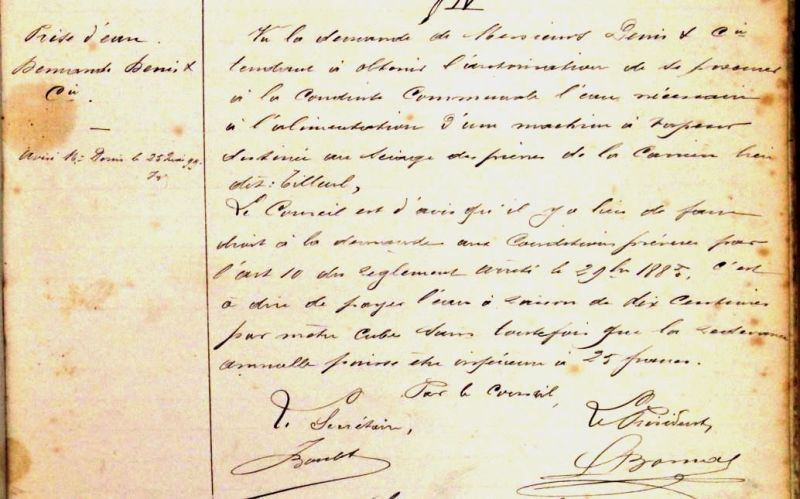 Prise d'eau.
Demande Denis &
Cie.
Avisé Mr Denis le 25 mai 99.
Vu la demande de Messieurs Denis & Cie
tendant à obtenir l'autorisation de se procurer
à la Conduite Communale l'eau nécessaire
à l'alimentation d'une machine à vapeur
destinée au sciage des pierres de la Carrière lieu
dit: Tilleul,
Le Conseil est d'avis qu'il y a lieu de faire
droit à la demande aux Conditions prévues par
l'art 10 du Règlement arrêté le 29 1885, c'est
à dire de payer l'eau à raison de dix centimes
par mètre Cube sans toutefois que la redevance
annuelle puisse être inférieure à 25 francs.
Par le Conseil,
Le Secrétaire,
Le Président,